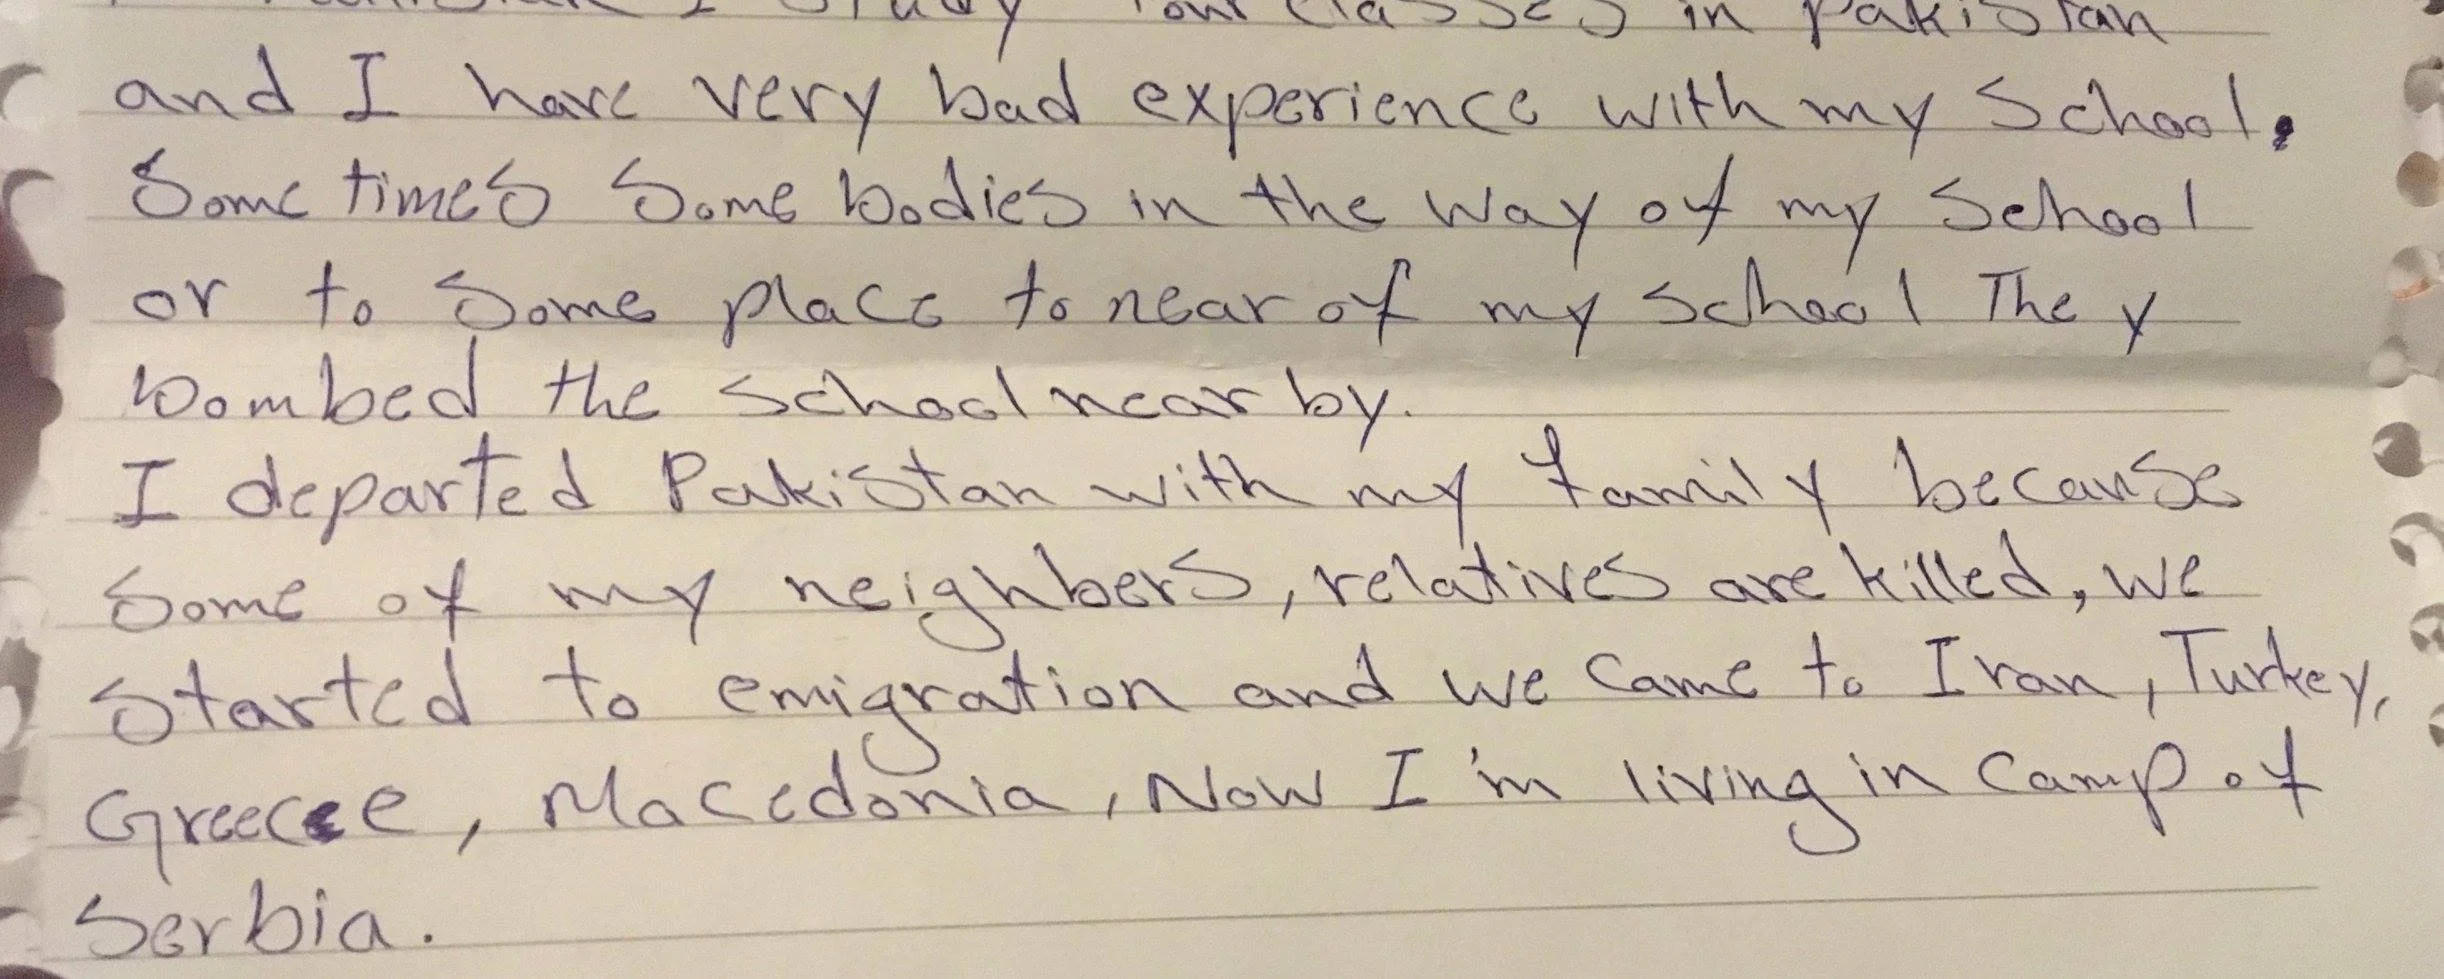 I study four classes in Pakistan
and I have very bad experience with my School.
Some times Some bodies in the way of my School
or to Some place to near of my school They
bombed the school near by.
I departed Pakistan with my family because
Some of my neighbers, relatives are killed, we
Started to emigration and we came to Iran, Turkey,
Greecee, Macedonia, Now I'm living in Camp of
Serbia.